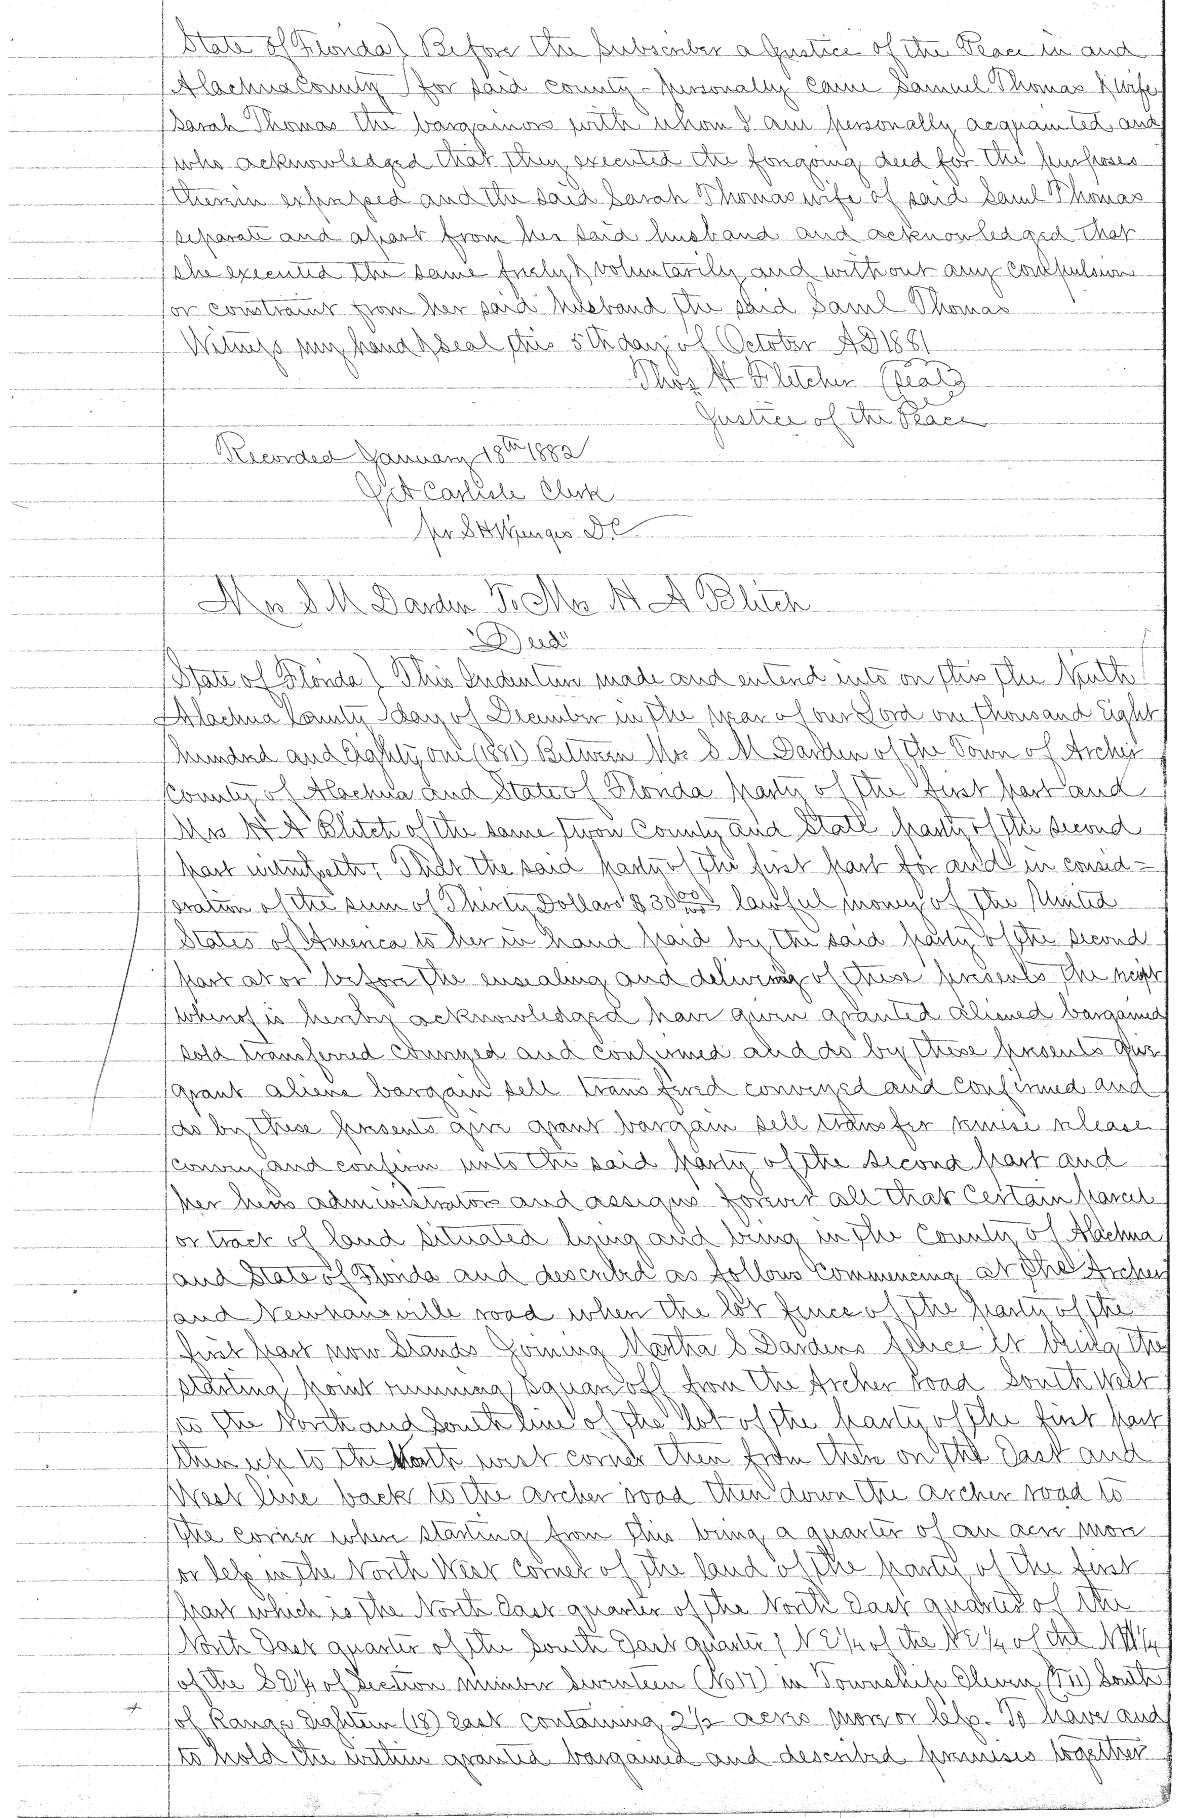 State of Florida } Before the Subscriber a Justice of the Peace in and
Alachua County } for said county - personally came Samuel Thomas & wife
Sarah Thomas the bargainors with whom I am personally acquainted and
who acknowledged that they executed the forgoing deed for the purposes
therein expressed and the said Sarah Thomas wife of said Saml Thomas
separate and apart from her said husband and acknowledged that
she executed the same freely & voluntarily and without any compulsion
or constraint from her said husband the said Saml Thomas
Witness my hand & seal this 5th day of October AD 1881
Thos H Fletcher (Seal)
Justice of the Peace
Recorded January 18th 1882
J A Carlisle Clerk
pr S H Wienges D.C
Mrs S M Darden To Mrs H A Blitch
"Deed"
State of Florida } This Indenture made and entered into on this the Ninth
Alachua County } day of December in the year of our Lord one thousand Eight
hundred and Eighty one (1881) Between Mrs S M Darden of the Town of Archer
County of Alachua and State of Florida party of the first part and
Mrs H A Blitch of the same town County and State party of the second
part witnesseth; That the said party of the first part for and in consid=
eration of the sum of Thirty Dollars $30 00/100 lawful money of the United
States of America to her in hand paid by the said party of the second
part at or before the ensealing and delivering of these presents the receipt
whereof is hereby acknowledged have given granted aliened bargained
sold transferred conveyed and confirmed and do by these presents give
grant aliene bargain sell transfered conveyed and confirmed and
do by these presents give grant bargain sell transfer remise release
convey and confirm unto the said party of the second part and
her heirs administrators and assigns forever all that certain parcel
or tract of land situated lying and being in the County of Alachua
and State of Florida and described as follows Commencing at the Archer
and Newnansville road where the lot fence of the party of the
first part now stands joining Martha S Dardens fence it being the
starting point running square off from the Archer road South West
to the North and South line of the lot of the party of the first part
then up to the North west corner then from there on the East and
West line back to the Archer road then down the Archer road to
the corner where starting from this being a quarter of an acre more
or less in the North West corner of the land of the party of the first
part which is the North East quarter of the North East quarter of the
North East quarter of the South East quarter, N E 1/4 of the N E 1/4 of the N W 1/4
of the S E 1/4 of Section number seventeen (No 17) in Township Eleven (T11) South
of Range Eighteen (18) East containing 2 1/2 acres more or less. To have and
to hold the within granted bargained and described premises together